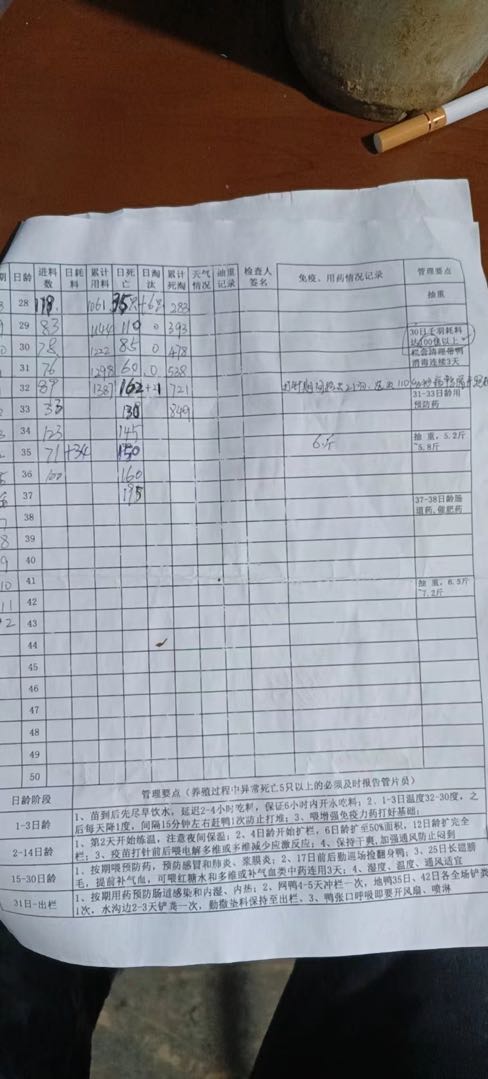 日龄 进料数 日耗料 累计用料 日死亡 日淘汰 累计死淘 天气情况 抽重记录 检查人签名 免疫、用药情况记录 管理要点
28 118. 1061 283 抽重
29 83 1144 110 0 393 30日
30 78 1222 85 0 478 消毒连续3天
31 76 1298 60 0 538
32 89 1387 162+21 721
33 33 130 849 31-33日龄用预防药
34 123 145
35 71+34 150 6斤 抽重，5.2斤~5.8斤
36 100 160
37 195 37-38日龄肠道药、催肥药
38
39
40
41 抽重，6.5斤~7.2斤
42
43
44
45
46
47
48
49
50
日龄阶段 管理要点（养殖过程中异常死亡5只以上的必须及时报告管片员）
1-3日龄 1、苗到后先尽早饮水，延迟2-4小时吃料，保证6小时内开水吃料；2、1-3日温度32-30度，之
后每天降1度，间隔15分钟左右赶鸭1次防止打堆；3、喂增强免疫力药打好基础；
2-14日龄 1、第2天开始炼温，注意夜间保温；2、4日龄开始扩栏，6日龄扩至50%面积，12日龄扩完全
栏；3、疫苗打针前后喂电解多维或多维减少应激反应；4、保持干爽，加强通风防止闷到
15-30日龄 1、按期喂预防药，预防感冒和肺炎、浆膜炎；2、17日前后勤巡场捡翻身鸭；3、25日长翅膀
毛，提前补气血，可喂红糖水和多维或补气血类中药连用3天；4、湿度、温度、通风适宜
31日-出栏 1、按期用药预防肠道感染和内湿、内热；2、网鸭4-5天冲栏一次，地鸭35日、42日各全场铲粪
1次，水沟边2-3天铲粪一次，勤撒染料保持至出栏。3、鸭张口呼吸即要开风扇、喷淋